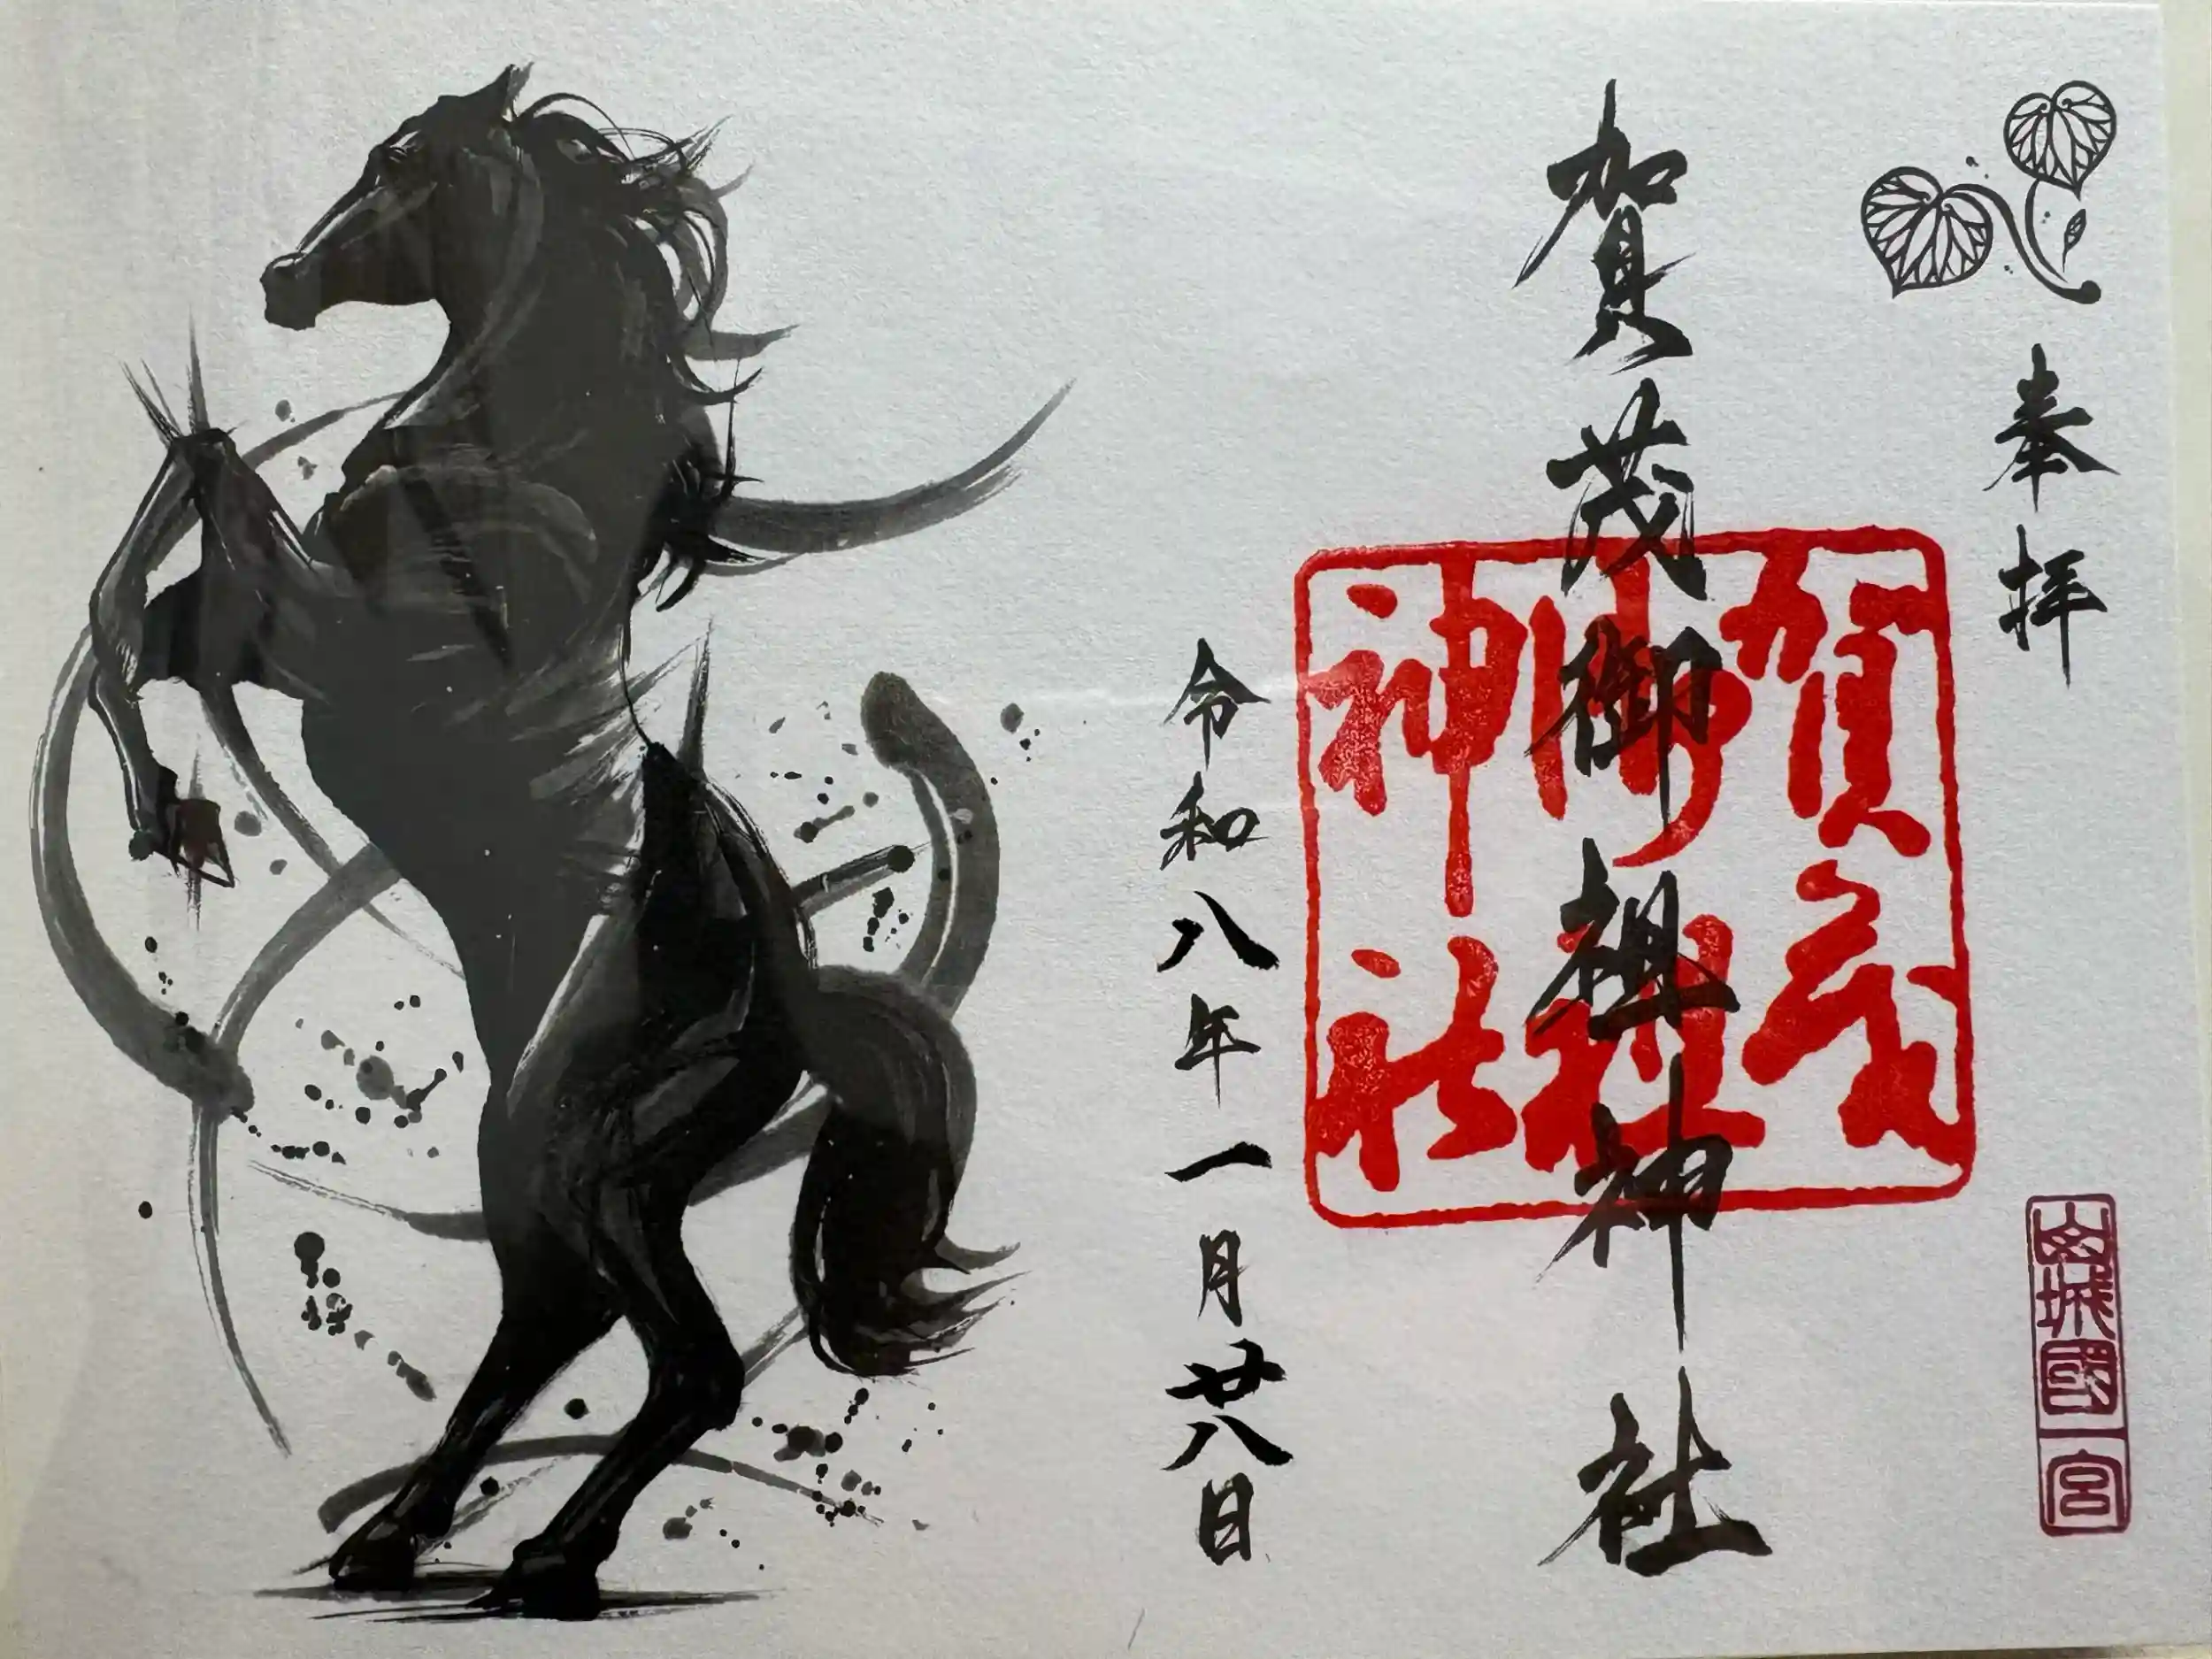 奉拝
山城國一宮
賀茂御祖神社
賀茂
御祖
神社
令和八年一月廿八日